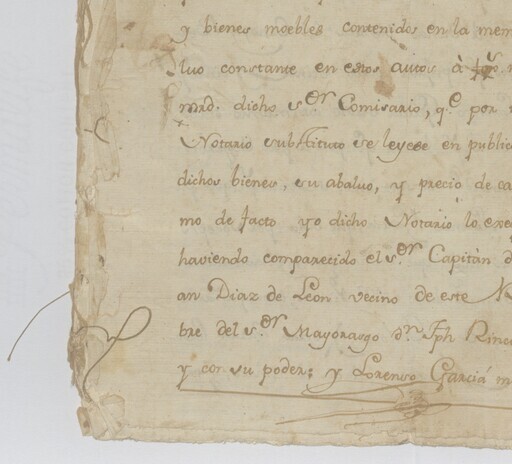 y bienes moebles contenidos en la mem
luo constante en estos autos à
mrd. dicho s.or Comisario, q.e por
Notario substituto se leyese en public
dichos bienes, su abaluo, y precio de ca
mo de facto yo dicho Notario lo exe
haviendo comparecido el s.or Capitàn d
an Diaz de Leon vecino de este R
bre del s.or Mayorasgo d.n Jph Rinco
y con su poder; y Lorenso Garcia m